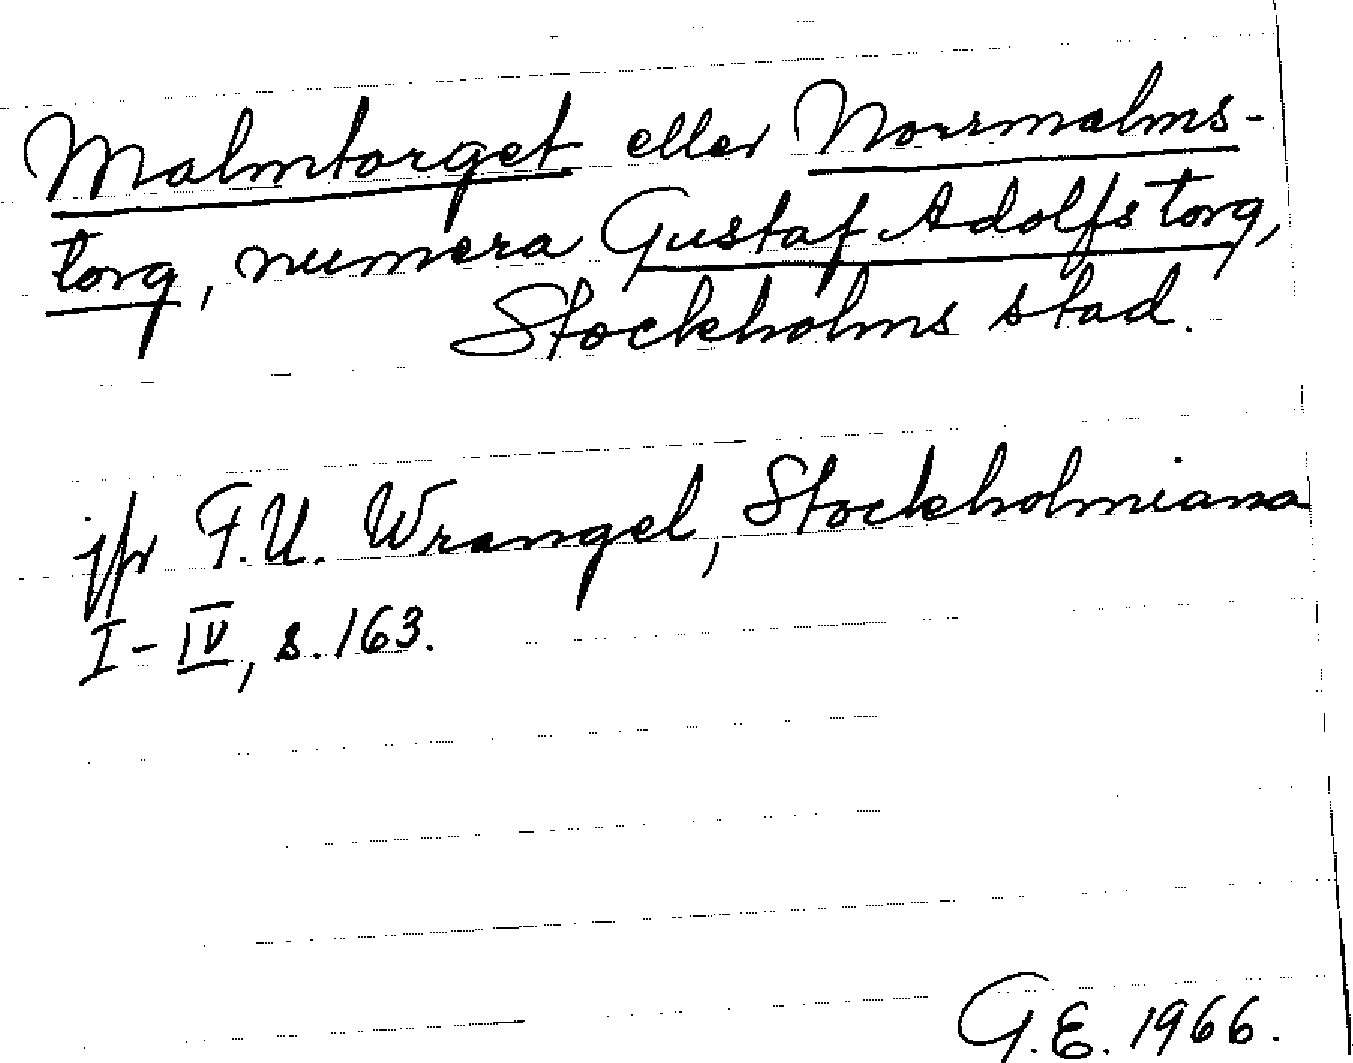 Malmtorget eller Norrmalms-
torg, numera Gustaf Adolfs torg,
Stockholms stad.
jfr F.U. Wrangel, Stockholmiana
I-IV, s. 163.
G.E. 1966.